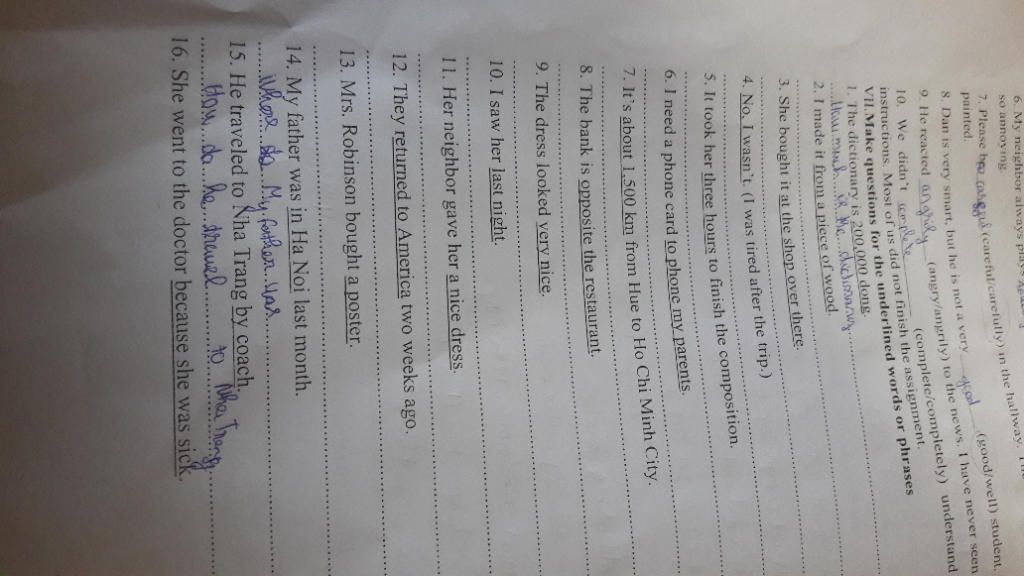 6. My neighbor always plays
so annoying.
7. Please be careful (careful/carefully) in the hallway.
painted.
8. Dan is very smart, but he is not a very good (good/well) student.
9. He reacted angrily (angry/angrily) to the news. I have never seen
10. We didn't complete (complete/completely) understand
instructions. Most of us did not finish the assignment.
VII.Make questions for the underlined words or phrases
1. The dictionary is 200,000 dong.
How much is the dictionary
2. I made it from a piece of wood.
3. She bought it at the shop over there.
4. No, I wasn't. (I was tired after the trip.)
5. It took her three hours to finish the composition.
6. I need a phone card to phone my parents.
7. It's about 1,500 km from Hue to Ho Chi Minh City.
8. The bank is opposite the restaurant.
9. The dress looked very nice.
10. I saw her last night.
11. Her neighbor gave her a nice dress.
12. They returned to America two weeks ago.
13 Mrs. Robinson bought a poster.
14. My father was in Ha Noi last month.
My father was
15. He traveled to Nha Trang by coach.
How do he travel to Nha Trang
16. She went to the doctor because she was sick.